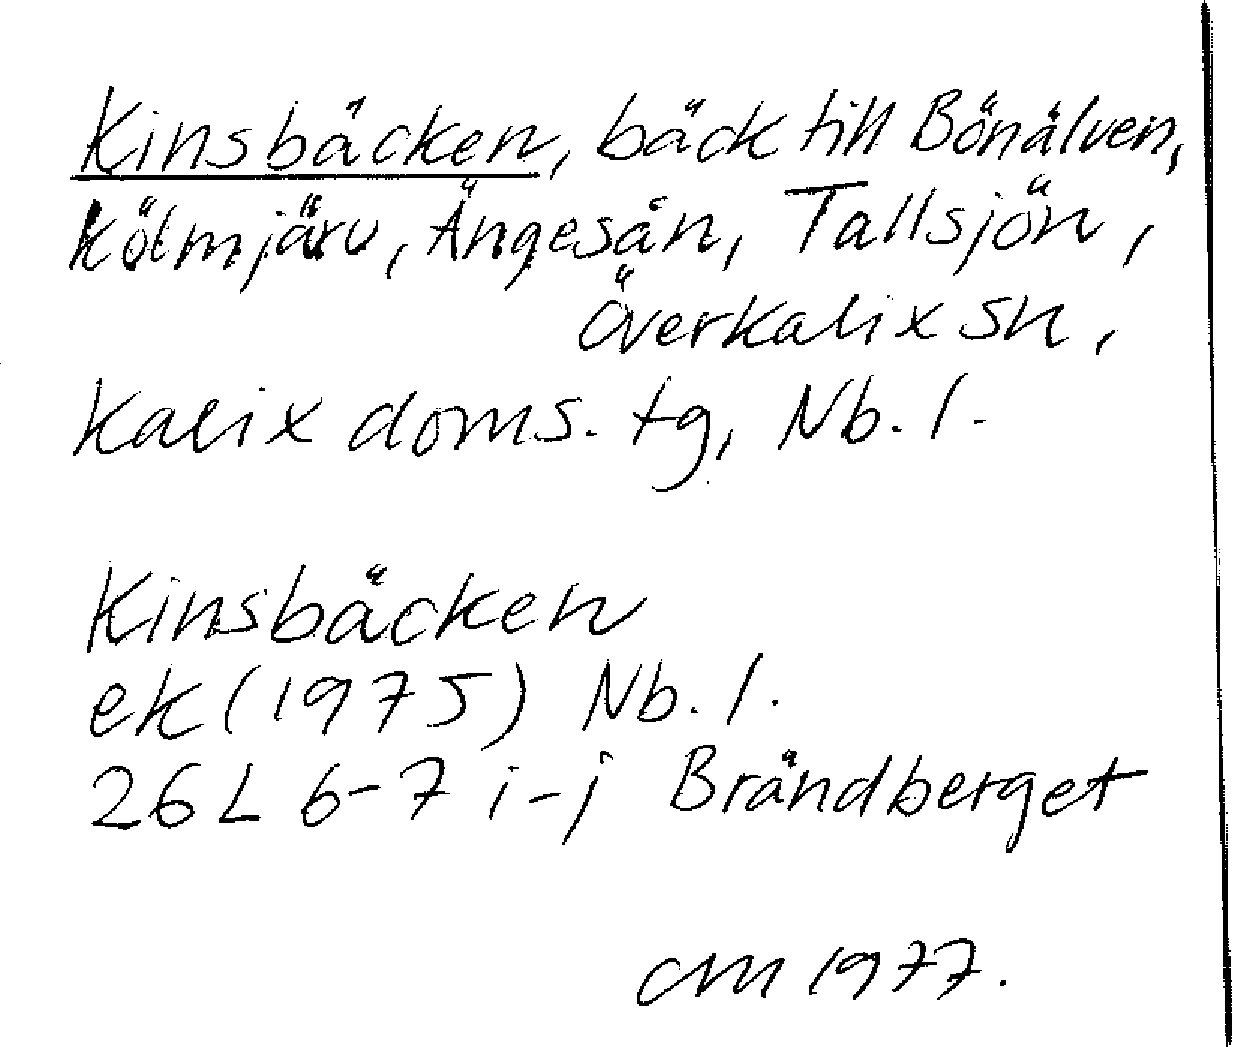 Kinsbäcken, bäck till Bönälven,
Kölmjärv, Ängesån, Tallsjön,
Överkalix sn,
Kalix doms. tg, Nb. l.
Kinsbäcken
ek (1975) Nb. l.
26 L 6-7 i-j Brändberget
CM 1977.